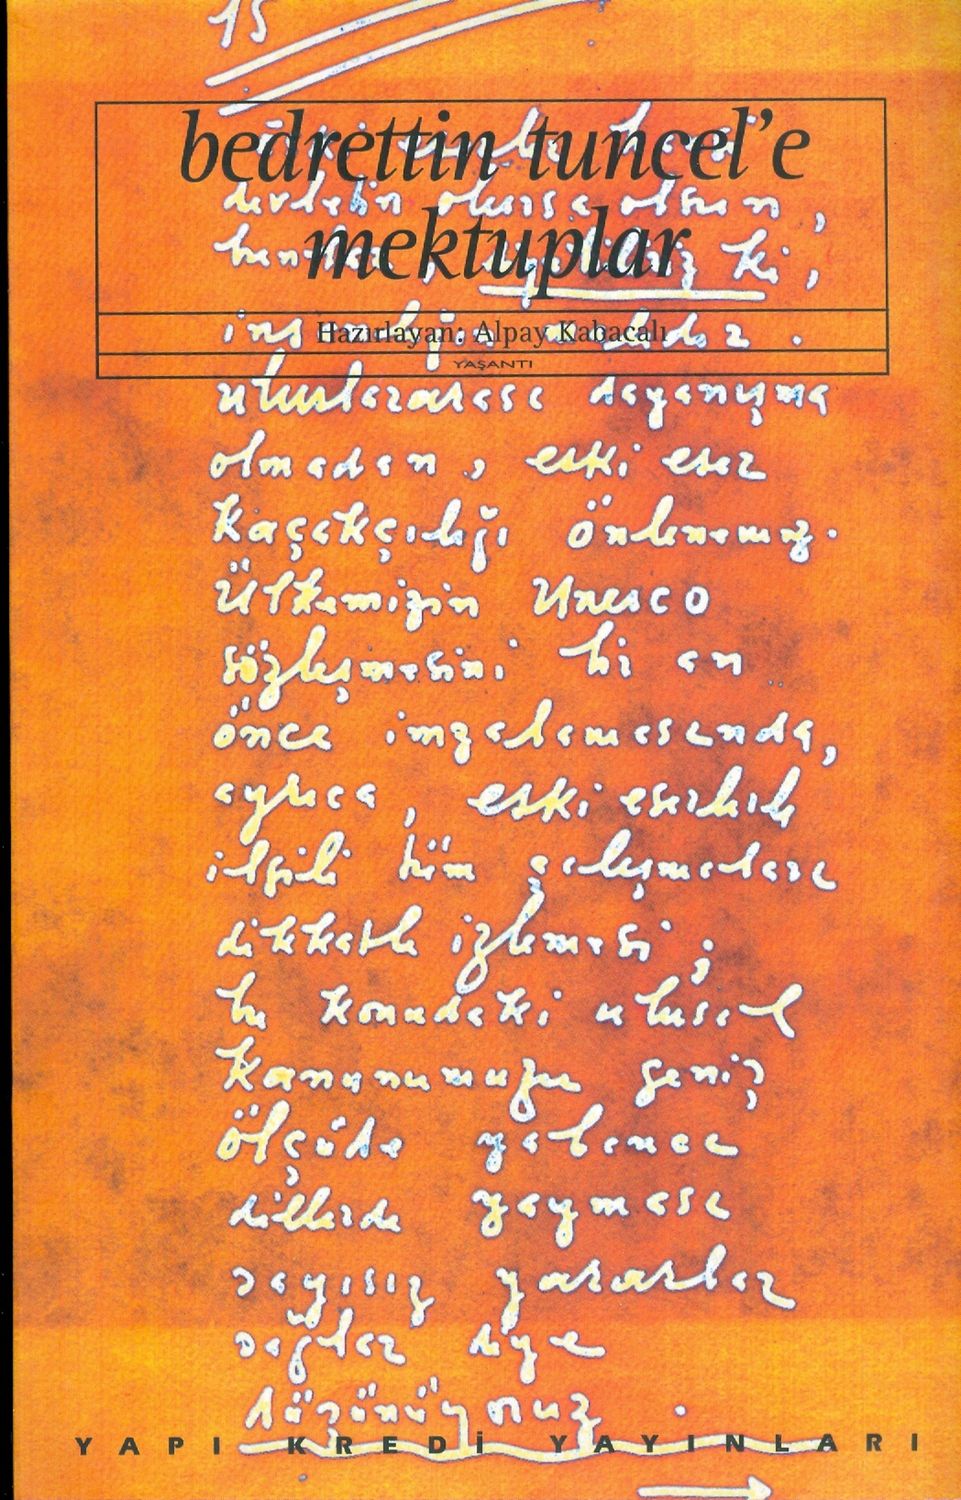 15
bedrettin tuncel'e
devletin olursa olsun,
mektuplar
ki,
Hazırlayan: Alpay Kabacalı
YAŞANTI
uluslararası dayanışma
olmadan, eski eser
kaçakçılığı önlenemez.
Ülkemizin Unesco
sözleşmesini bir an
önce imzalamasında,
ayrıca, eski eserlerle
ilgili tüm çalışmaları
dikkatle izlemesi;
bu konudaki ulusal
kanunumuzu geniş
ölçüde yabancı
dillerde yayması
sayısız yararlar
sağlar diye
düşünüyoruz.
YAPI KREDİ YAYINLARI